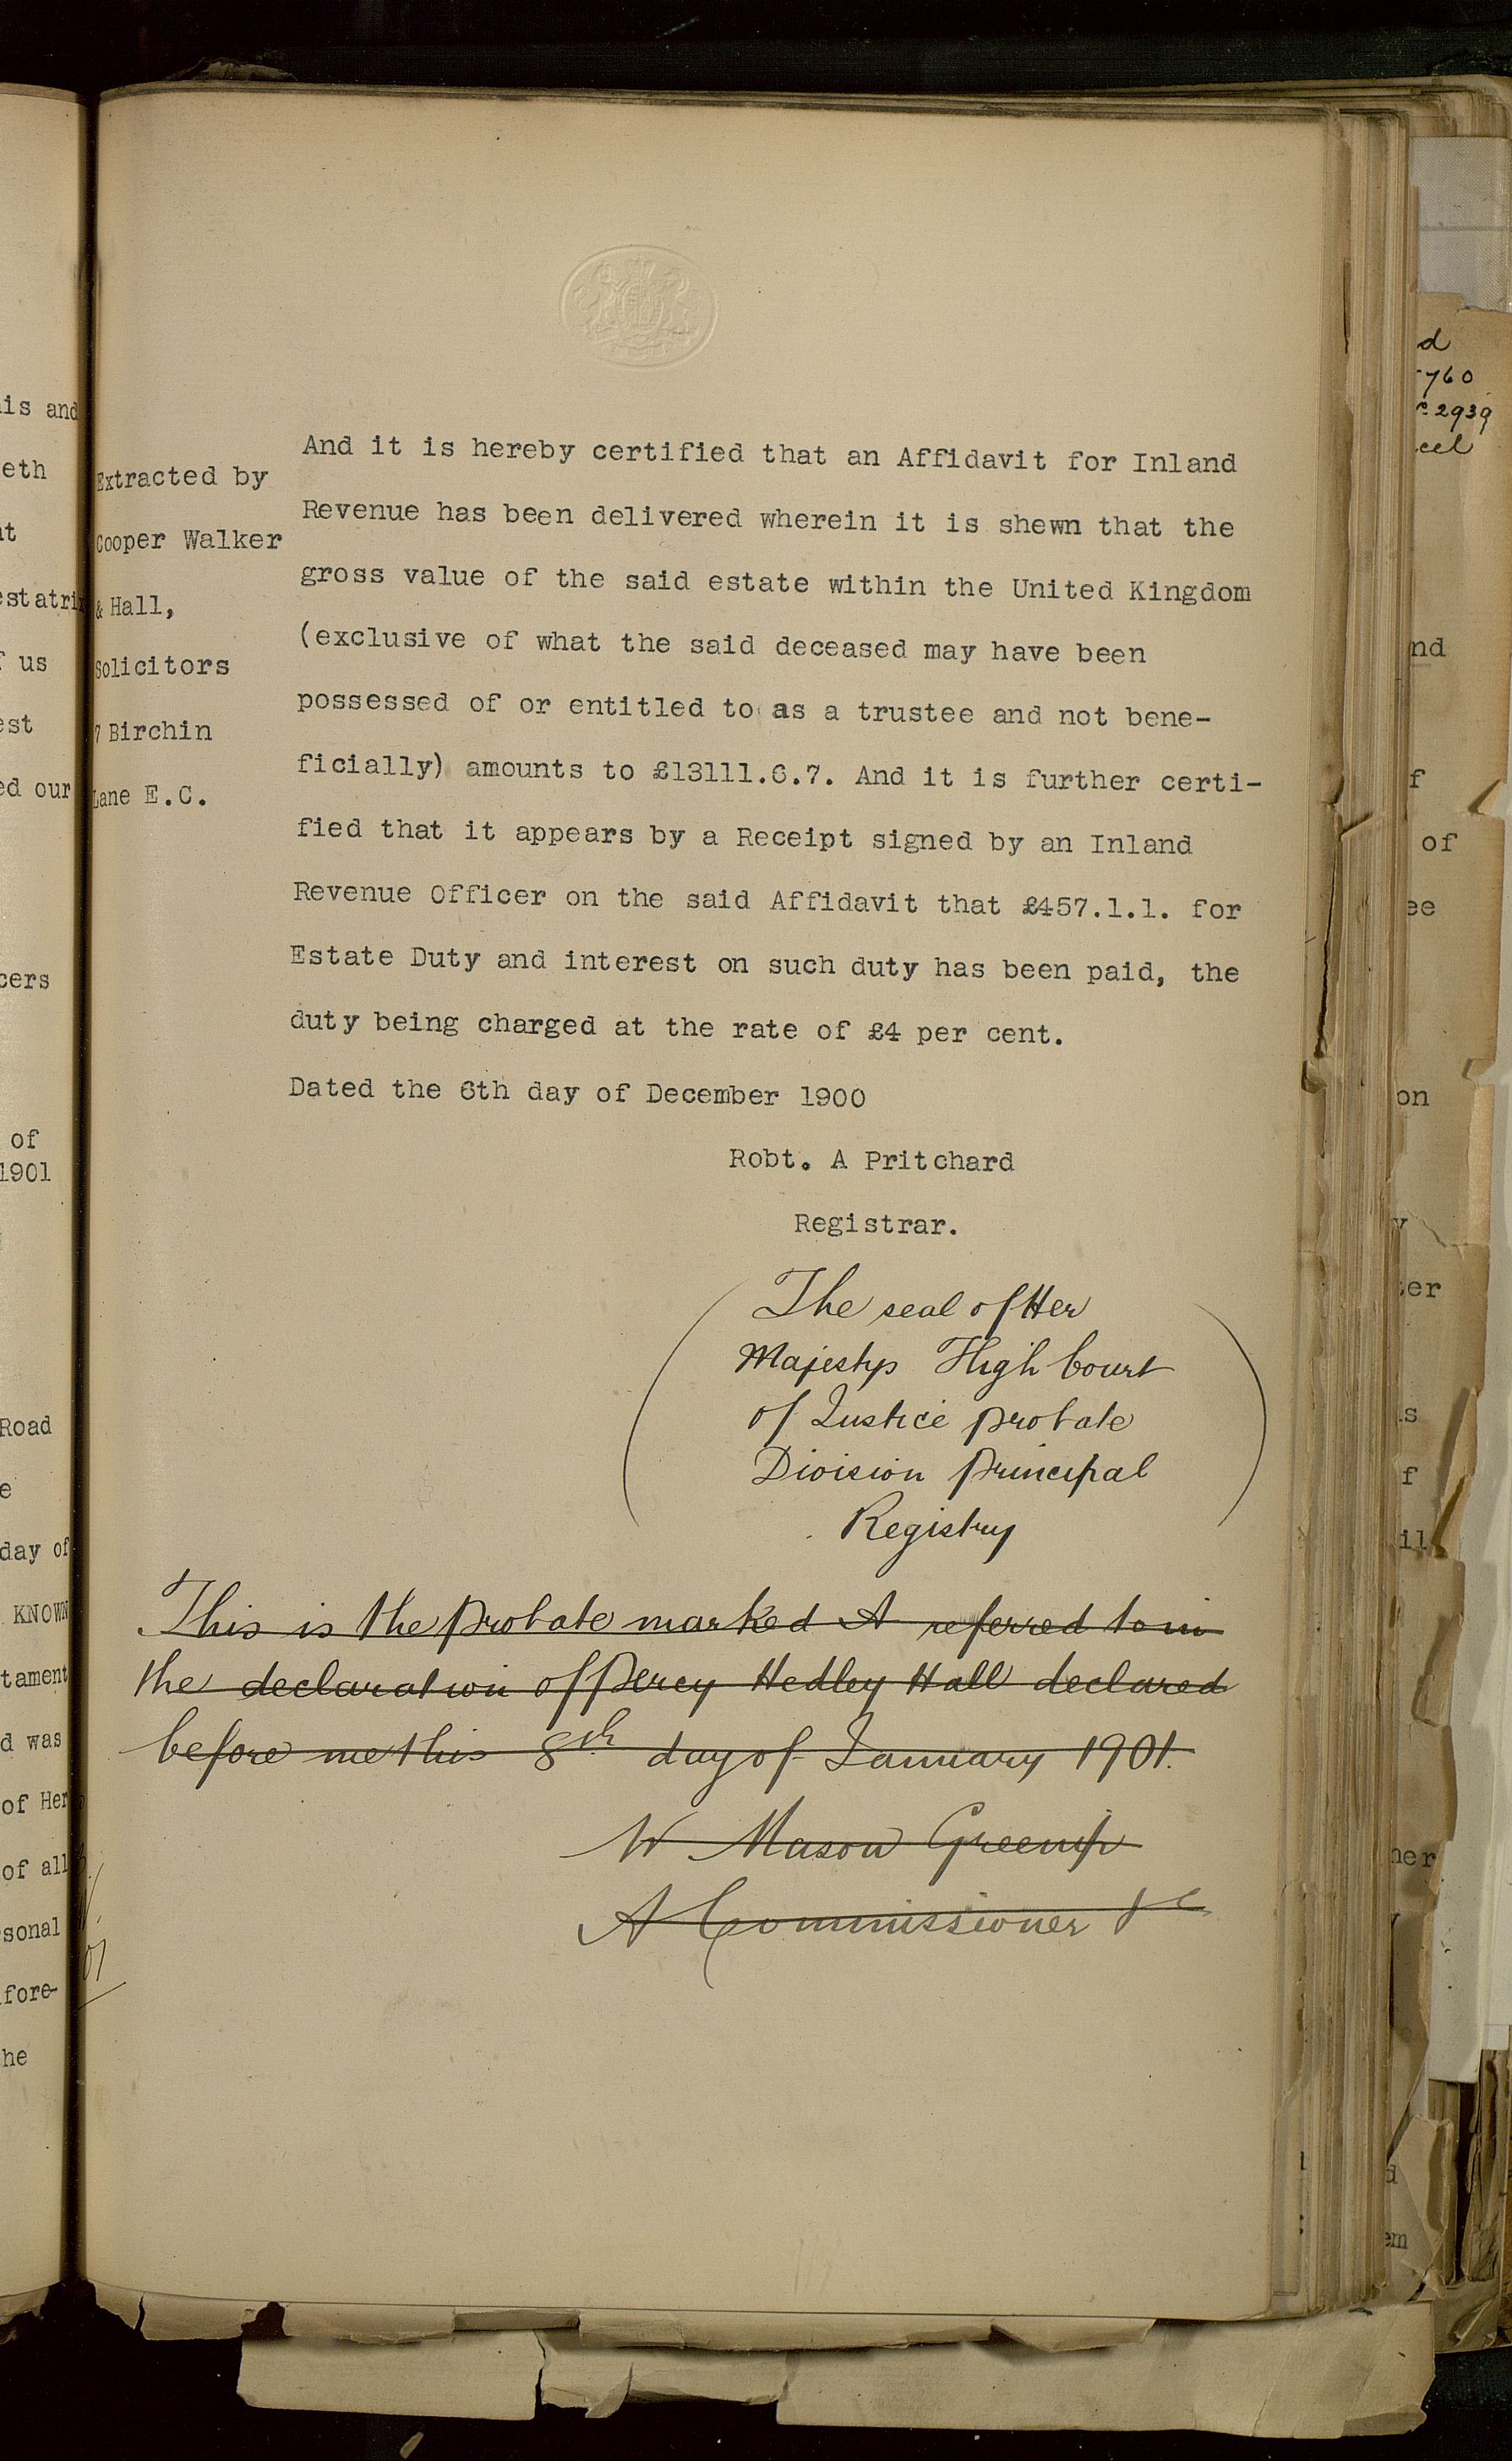 is and
eth
estatri
us
est
ed our
cers
of
1901
Road
e
day of
KNOWN
tament
d was
of Her
of all
sonal
fore-
he
Extracted by
Cooper Walker
& Hall,
Solicitors
7 Birchin
Lane E.C.
And it is hereby certified that an Affidavit for Inland
Revenue has been delivered wherein it is shewn that the
gross value of the said estate within the United Kingdom
(exclusive of what the said deceased may have been
possessed of or entitled to as a trustee and not bene-
ficially) amounts to £13111.6.7. And it is further certi-
fied that it appears by a Receipt signed by an Inland
Revenue Officer on the said Affidavit that £457.1.1. for
Estate Duty and interest on such duty has been paid, the
duty being charged at the rate of £4 per cent.
Dated the 6th day of December 1900
Robt. A Pritchard
Registrar.
The seal of Her
Majestys High Court
of Justice probate
Division principal
Registry
This is the probate marked A referred to in
the declaration of Percy Hedley Hall declared
before me this 8th day of January 1901.
W Mason Greenip
A Commissioner &c
d
760
2939
cel
nd
f
of
ee
on
y
ter
is
f
il
her
d
em